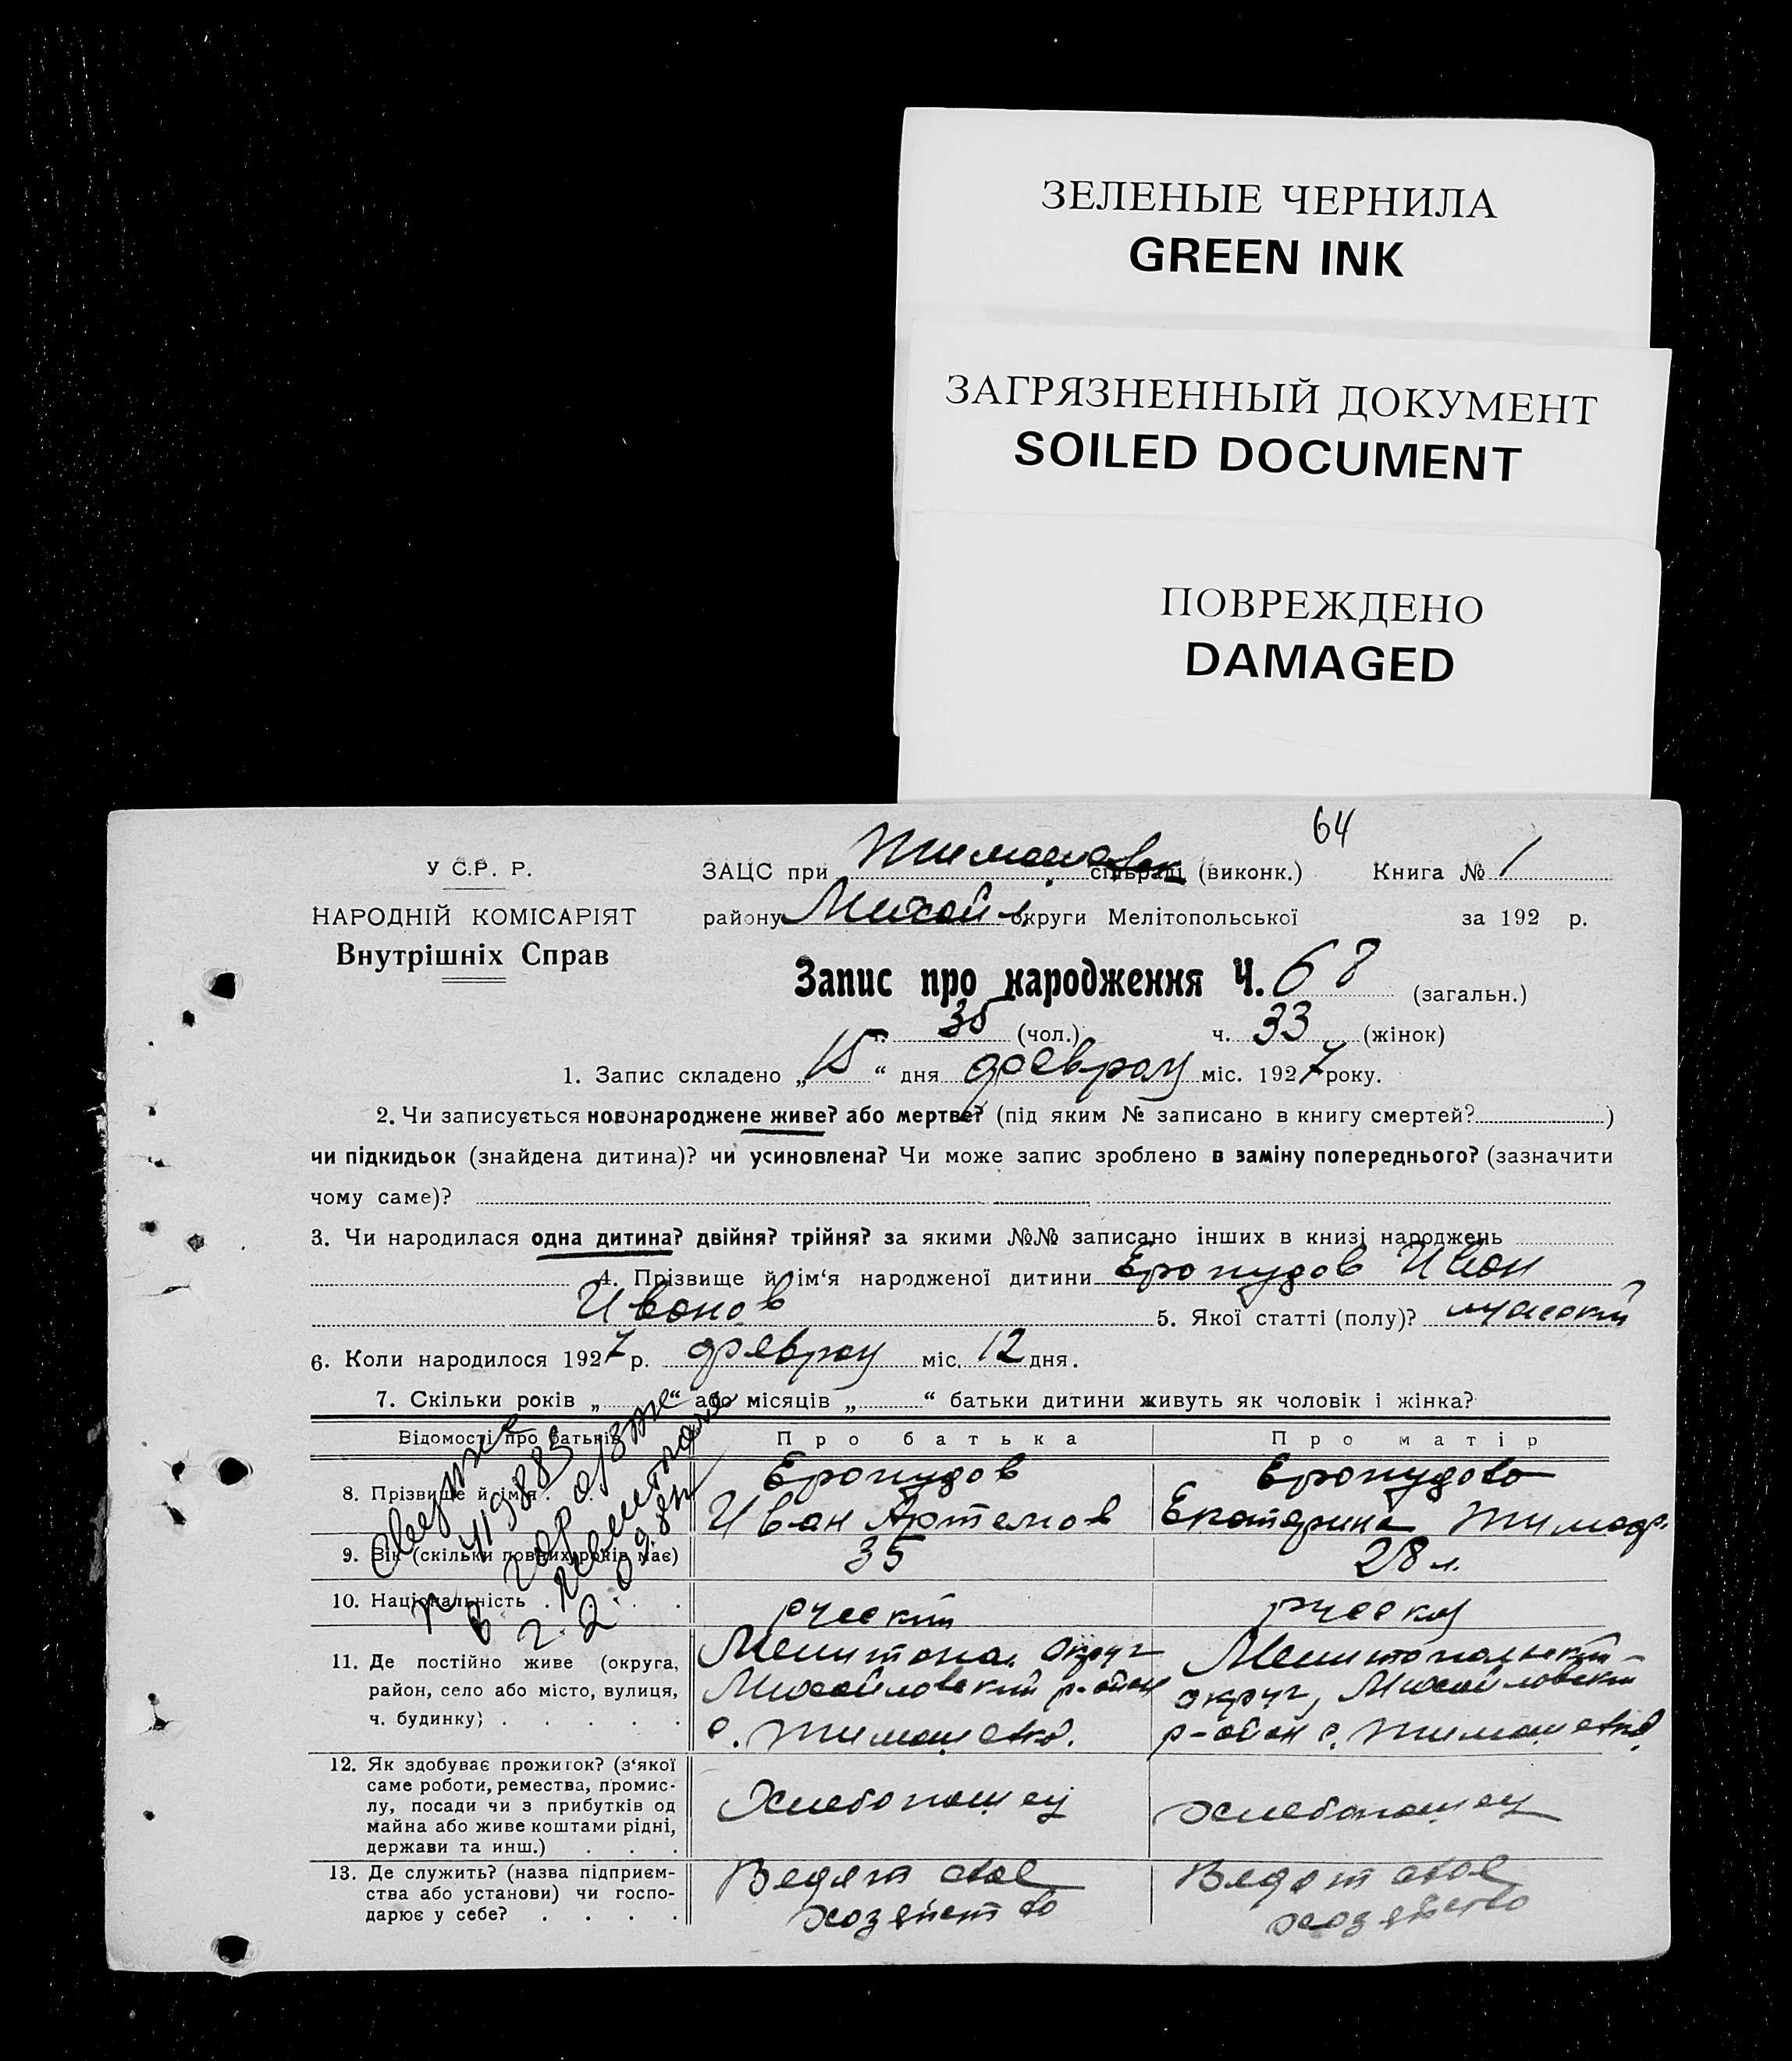 ЗЕЛЕНЫЕ ЧЕРНИЛА
GREEN INK
ЗАГРЯЗНЕННЫЙ ДОКУМЕНТ
SOILED DOCUMENT
ПОВРЕЖДЕНО
DAMAGED
64
У С.Р. Р.
НАРОДНІЙ КОМІСАРІЯТ
Внутрішніх Справ
ЗАЦС при Тимошовск сільраці (виконк.) Книга № 1
району Михайл. округи Мелітопольської за 192 р.
Запис про народження Ч. 68 (загальн.)
ч. 35 (чол.) ч. 33 (жінок)
1. Запис складено „15“ дня февраля міс. 1927 року.
2. Чи записується новонароджене живе? або мертве? (під яким № записано в книгу смертей? )
чи підкидьок (знайдена дитина)? чи усиновлена? Чи може запис зроблено в заміну попереднього? (зазначити
чому саме)?
3. Чи народилася одна дитина? двійня? трійня? за якими №№ записано інших в книзі народжень
4. Прізвище й ім‘я народженої дитини Еропудов Иван
Иванов 5. Якої статті (полу)? мужской
6. Коли народилося 1927 р. февраля міс. 12 дня.
7. Скільки років „ “ або місяців „ “ батьки дитини живуть як чоловік і жінка?
Відомості про батьків Про батька Про матір
8. Прізвище й ім‘я . . Еропудов Еропудова
Иван Артемов Екатерина Тимоф.
9. Вік (скільки повних років має) 35 28 л.
10. Національність . . . . русский русская
11. Де постійно живе (округа,
район, село або місто, вулиця,
ч. будинку) . . . . .
Мелитопол. округ
Михайловский р-айон
с. Тимошевка.
Мелитопольский
округ, Михайловский
р-айон с. Тимошевка.
12. Як здобуває прожиток? (з‘якої
саме роботи, ремества, промис-
лу, посади чи з прибутків од
майна або живе коштами рідні,
держави та инш.) . . .
Хлебопашец
хлебопашец
13. Де служить? (назва підприєм-
ства або установи) чи госпо-
дарює у себе? . . . .
Ведет свое
хозяйство
Ведет свое
хозяйство